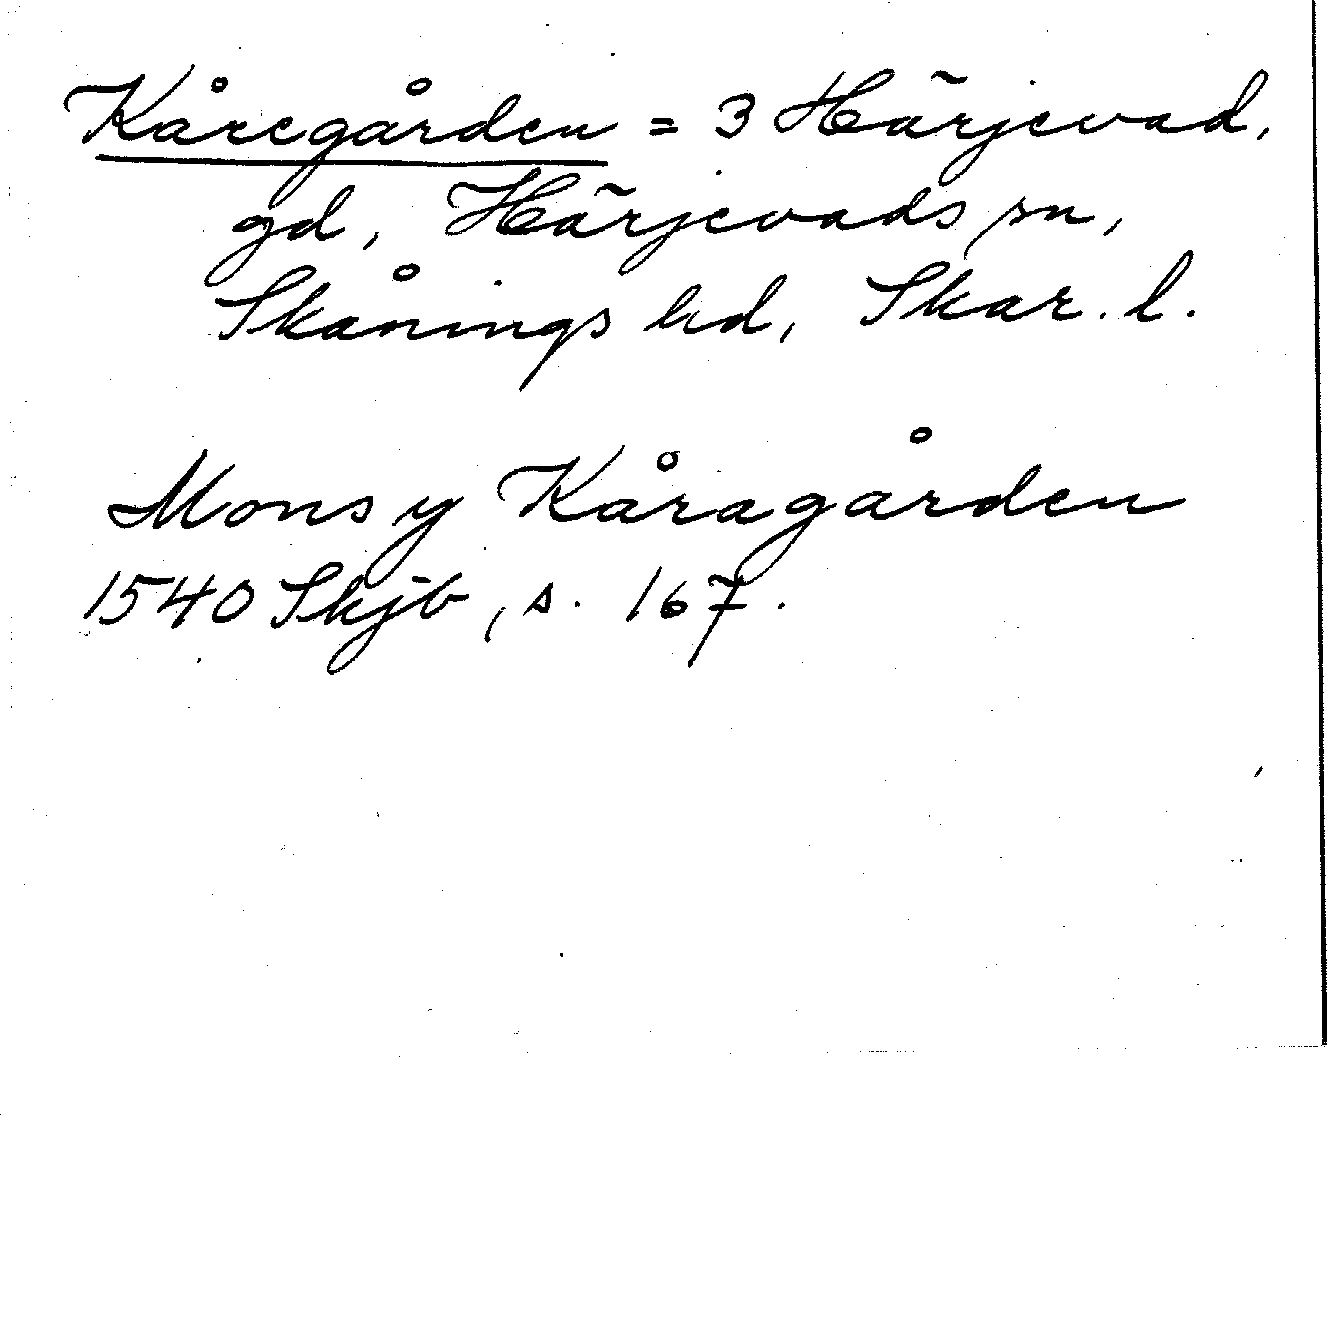 Kåregården = 3 Härjevad,
gd, Härjevads sn,
Skånings hd, Skar. l.
Mons y Kåragården
1540 Skjb, s. 167.